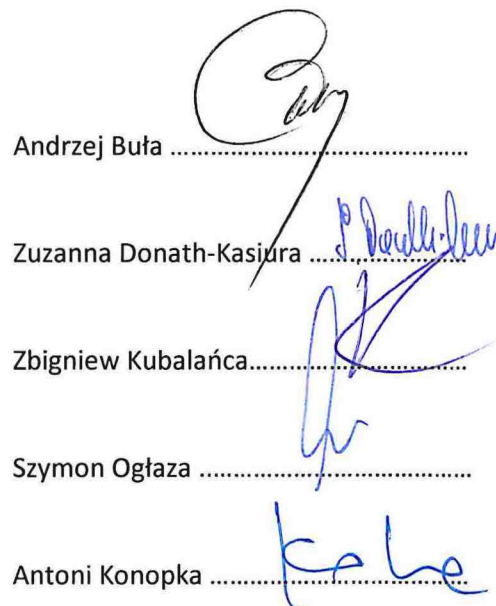 Andrzej Buła ........................................
Zuzanna Donath-Kasiura ......................
Zbigniew Kubalańca...............................
Szymon Ogłaza ......................................
Antoni Konopka ....................................